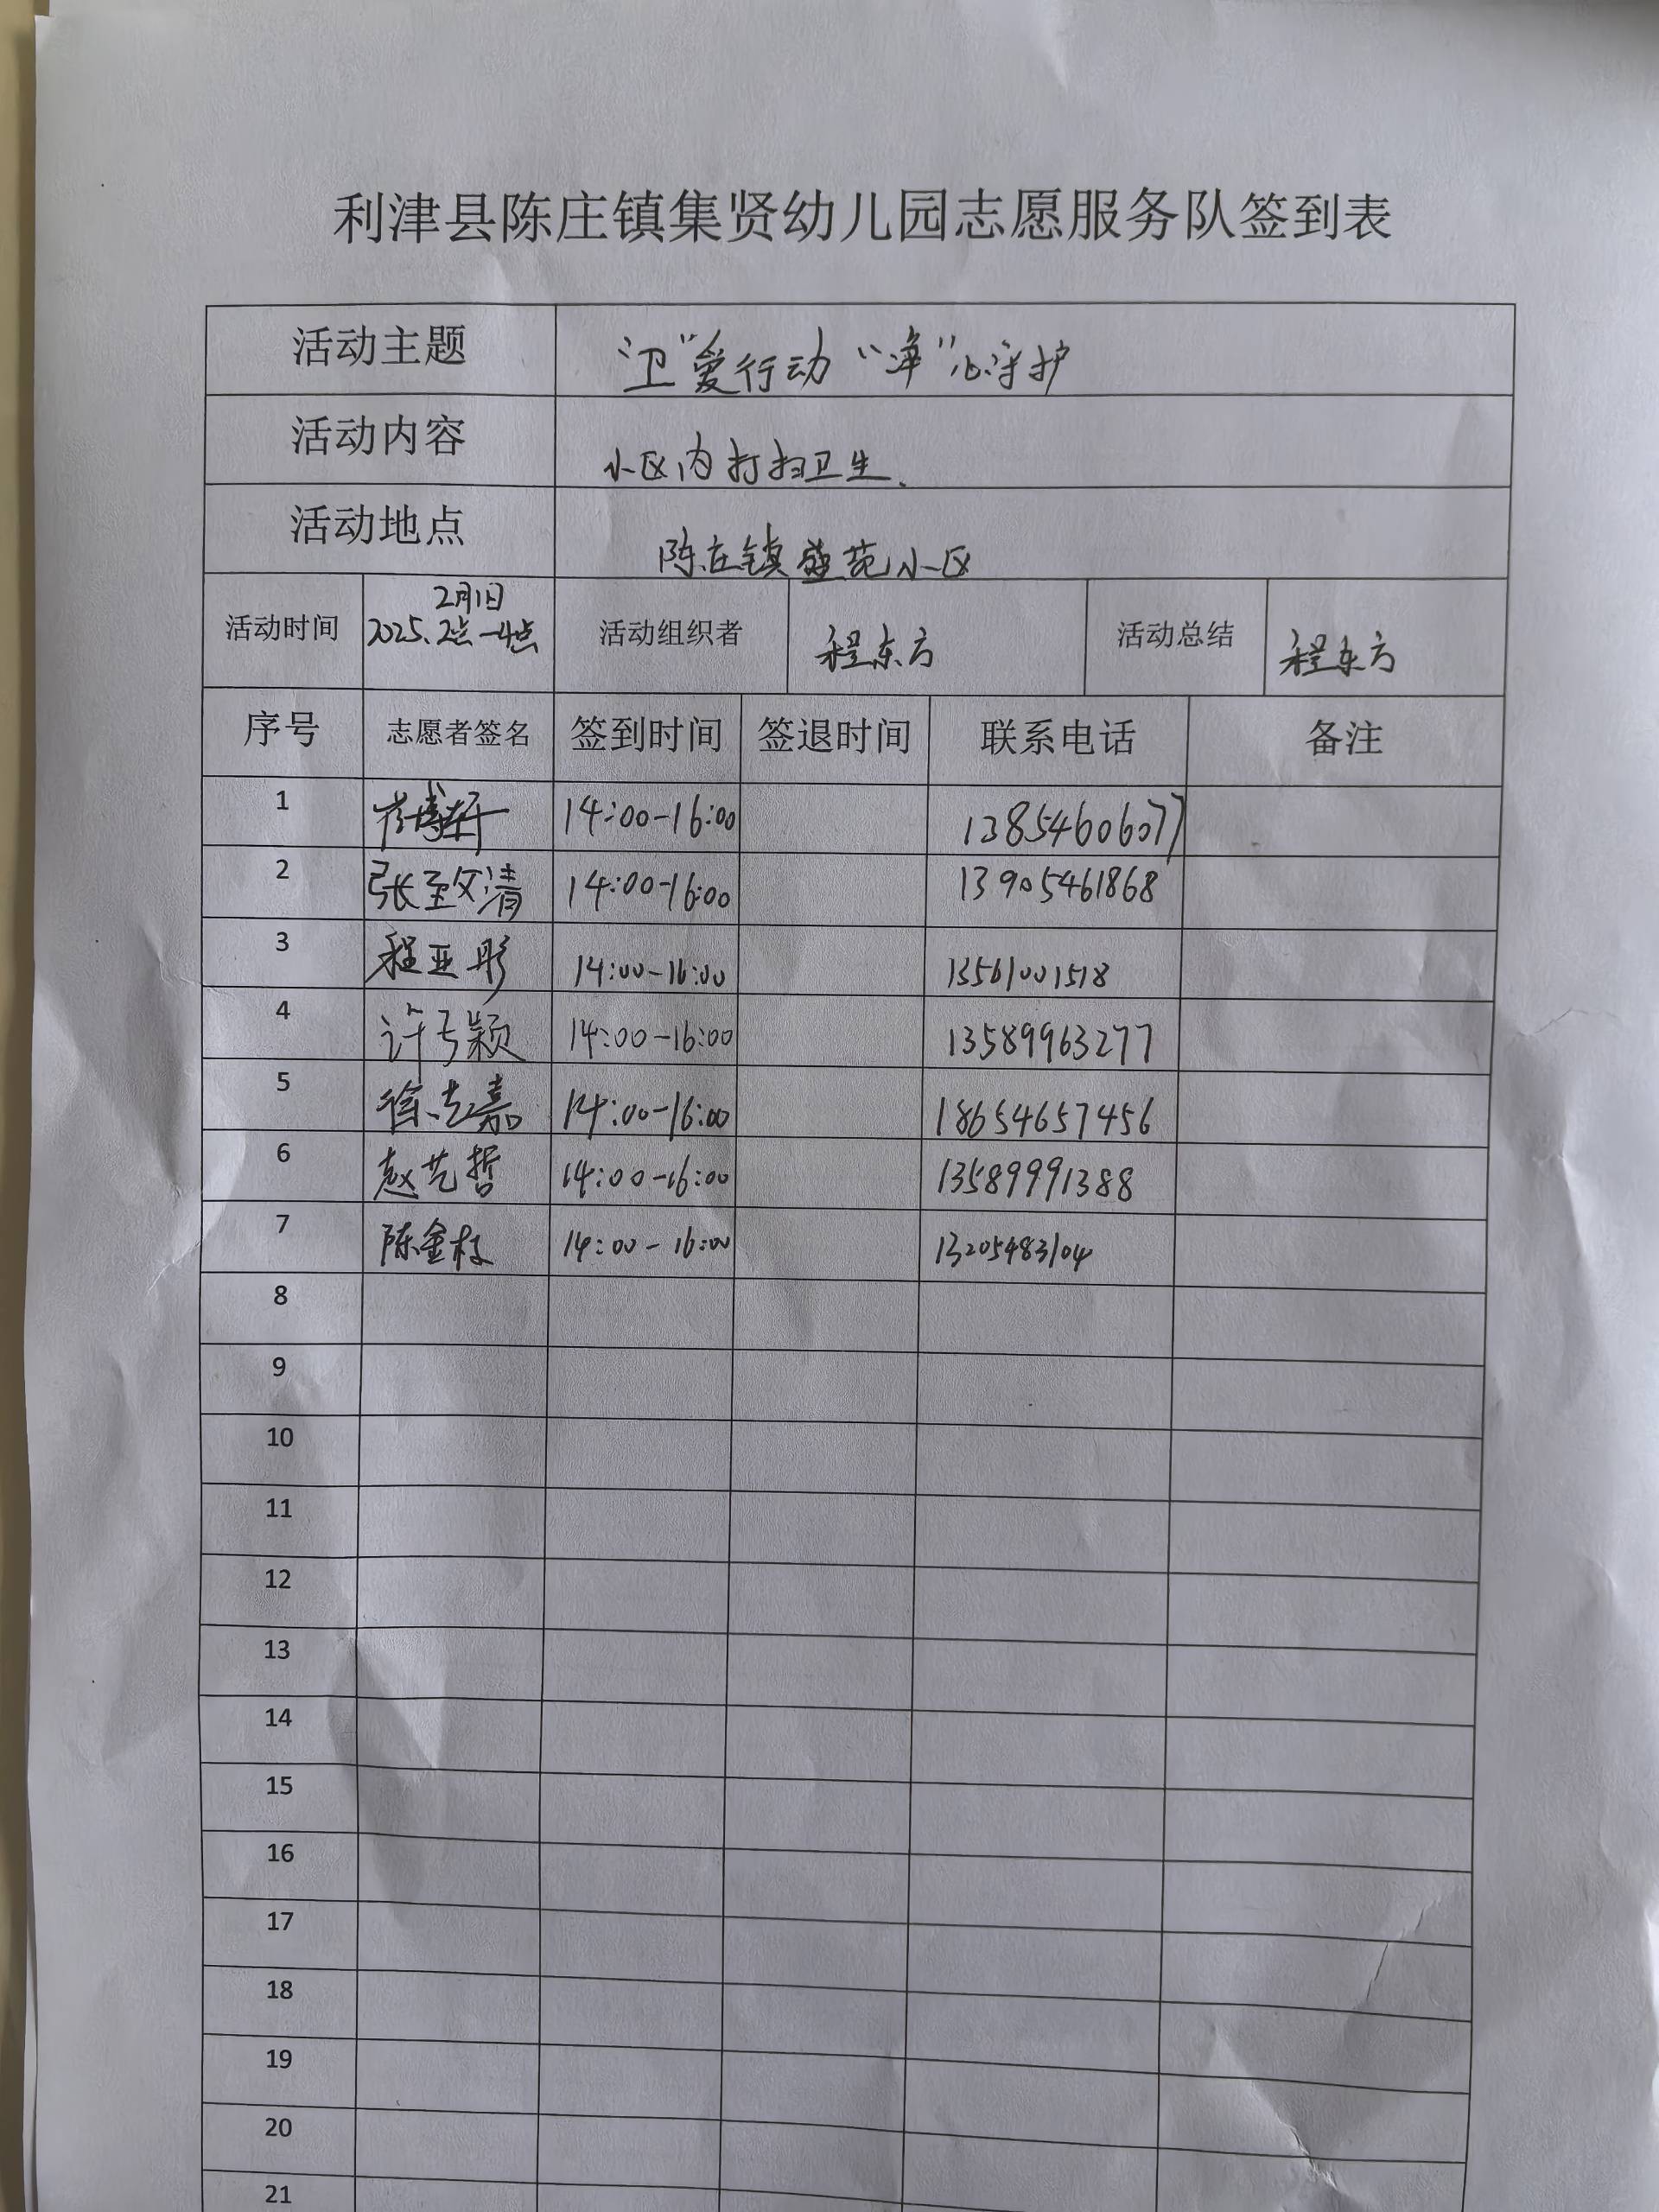 利津县陈庄镇集贤幼儿园志愿服务队签到表
活动主题 “卫”爱行动 “净”心守护
活动内容 小区内打扫卫生.
活动地点 陈庄镇盛苑小区
2月1日
活动时间 2025.2点-4点 活动组织者 程东方 活动总结 程东方
序号 志愿者签名 签到时间 签退时间 联系电话 备注
1 14:00-16:00 13854606077
2 张致清 14:00-16:00 13905461868
3 程亚彤 14:00-16:00 13561001518
4 14:00-16:00 13589963277
5 徐志嘉 14:00-16:00 18654657456
6 赵艺哲 14:00-16:00 13589991388
7 陈金枝 14:00-16:00 13205483104
8
9
10
11
12
13
14
15
16
17
18
19
20
21